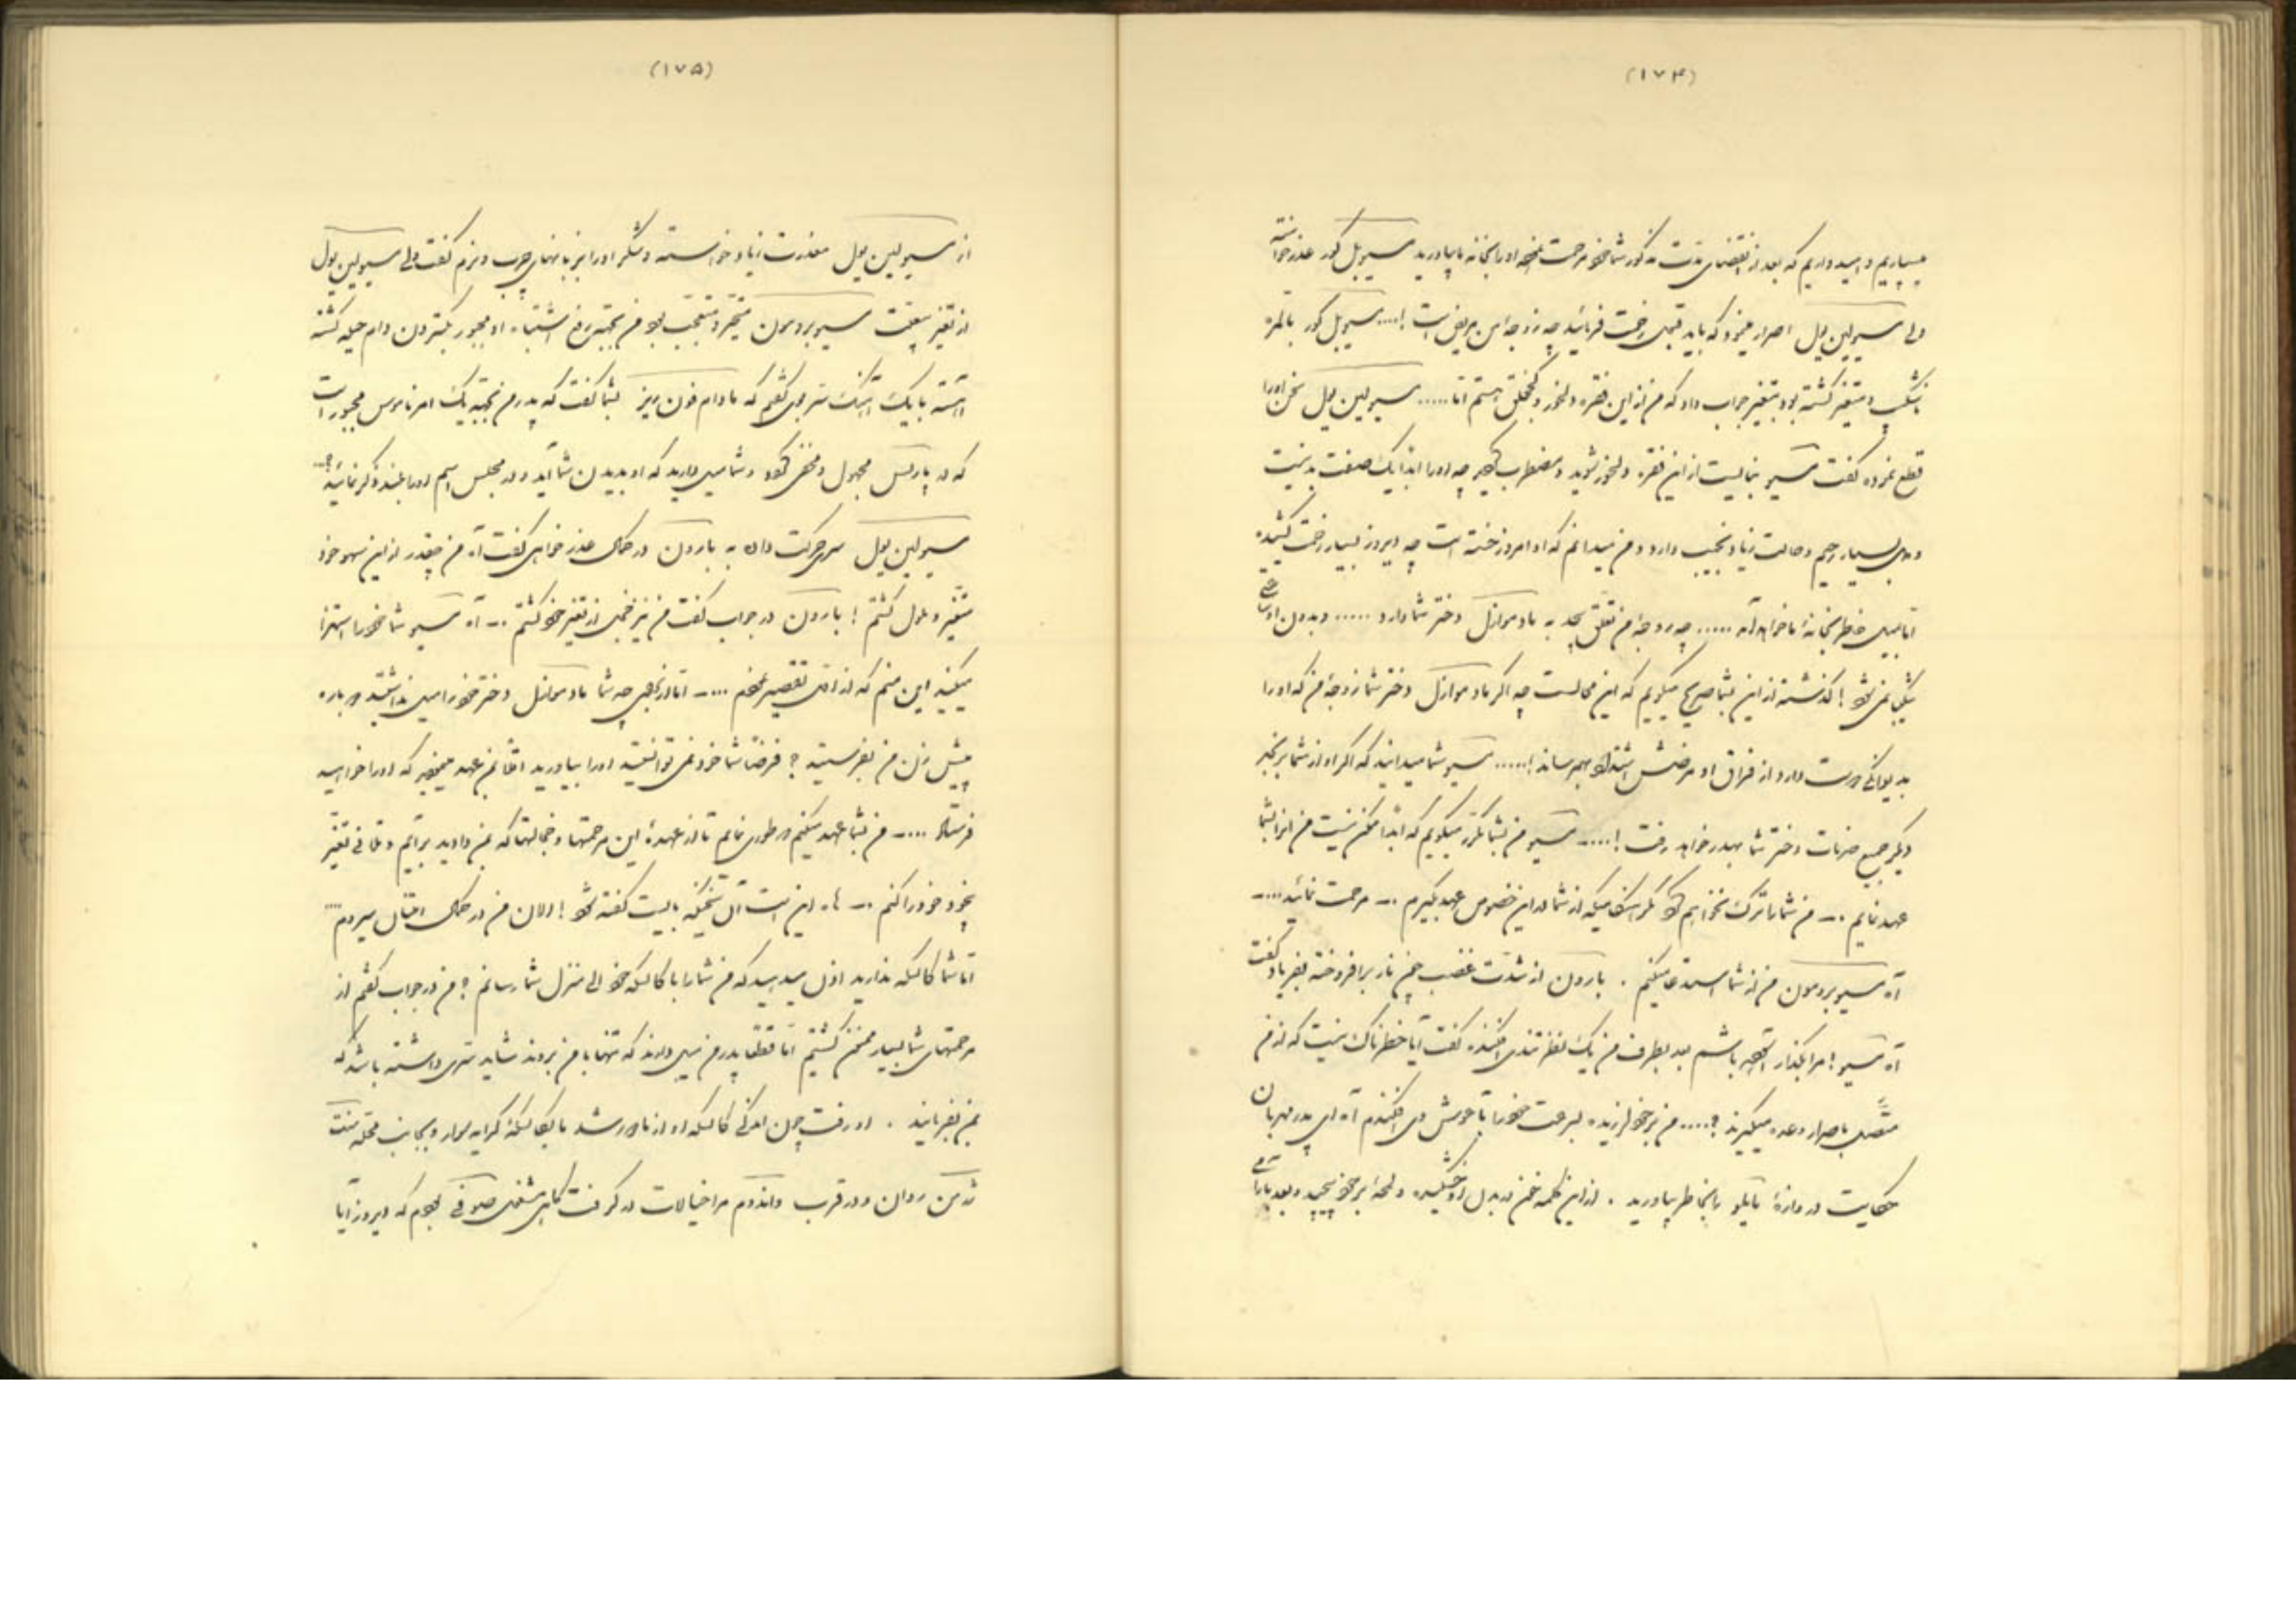 (۱۷۴)
میسپاریم و امیدواریم که بعد از انقضای مدت مذکور شما خود مرحمت نموده او را بخانه ما بیاورید مسیو بل کور عذر خواسته
ولی مسیو لین پول اصرار مینمود که باید قبول زحمت فرمائید چه زوجه من مریض است !.... مسیو بل کور بالمره
و متغیر گشته بود بتغیر جواب داد که من از این فقره دلخور و کج خلق هستم اما ..... مسیو لین پول سخن او را
قطع نموده گفت مسیو نبایست از این فقره دلخور شوید و مضطرب چه او را ابدا یک صفت بد نیست
و بسیار رحیم و حالت زیاد نجیب دارد و من میدانم که او امروز خسته است چه دیروز بسیار زحمت کشیده
اما بخانه ما خواهد آمد ..... چه زوجه من تعلق بیحد به مادموازل دختر شما دارد ..... و بدون او
نمی‌شود ! گذشته از این بشما صریح میگویم که این محالست چه اگر مادموازل دختر شما زوجه من که او را
بدیوانگی دوست دارد از فراق او مرضش اشتداد بهم رساند !..... مسیو شما میدانید که اگر او از شما برنجد
دیگر جمیع خدمات دختر شما بهدر خواهد رفت !..... مسیو من بشما مکرر میگویم که ابدا ممکن نیست من بشما
عهد نمایم .. من شما را ترک نخواهم کرد مگر آنکه از شما در این خصوص عهد بگیرم .. مرحمت نمائید.....
آه مسیو بردمون من از شما استدعا میکنم . بارون از شدت غضب چون نار برافروخته بفریاد گفت
آه مسیو ! مرا بگذار باشم بعد بطرف من یک نظر تندی افکنده گفت آیا خطرناک نیست که از من
متصل باصرار وعده میگیرند ؟.... من بر خود لرزیده بسرعت خود را بآغوش وی افکندم آه ای پدر مهربان
حکایت دروازه را بخاطر بیاورید . از این کلمه خون در بدل او خشکیده و لمحه بر خود پیچید و بعد بآرامی
(۱۷۵)
از مسیو لین پول معذرت زیاد خواسته و تشکر او را نیز بزبانهای چرب و نرم گفت ولی مسیو لین پول
از تغیر مسیو بردمون متحیر و متعجب بود من بجهة رفع اشتباه او مجبور بگستردن دام حیله گشته
آهسته با یک آهنگ سر بوی گفتم که مادام فون ریز بشما گفت که پدر من بجهة یک امر ناموس مجبور است
که در پاریس مجهول و مخفی و شما میل دارید که او بدیدن شما آید و در مجلس اسم او را بلند ذکر نمائید؟...
مسیو لین پول سری حرکت داده به بارون در حال عذر خواهی گفت آه من چقدر از این سهو خود
متغیر و ملول گشتم ! بارون در جواب گفت من نیز خجل از تغیر خود گشتم .. آه مسیو شما خود را استهزا
میکنید این منم که تقصیر نمودم .... اما چه شما مادموازل دختر خود را میل نداشتید دوباره
پیش زن من بفرستید ؟ فرضا شما خود نمی توانستید او را بیاورید اقلا بمن عهد که او را خواهید
فرستاد .... من بشما عهد میکنم در طوری نمایم تا از عهدۀ این مرحمتها و خجالتها که بمن دادید برآیم و تلافی تغیر
بیخود خود را کنم .. ها این است آن سخنیکه بایست گفته شود ! الان من در حال امتثال میروم ....
اما شما کالسکه ندارید اذن میدهید که من شما را با کالسکه خود الی منزل شما رسانم ؟ من در جواب گفتم از
مرحمتهای شما بسیار ممنون گشتیم اما فقط پدر من میل دارند که تنها با من بروند شاید سری داشته باشد که
بمن بفرمایند . او رفت چون اندکی کالسکه او از ما دور شد ما بکالسکه کرایه سوار و بجانب محله سنت
ژرمن روان و در قرب واندوم مرا خیالات در گرفت که دیروز آیا